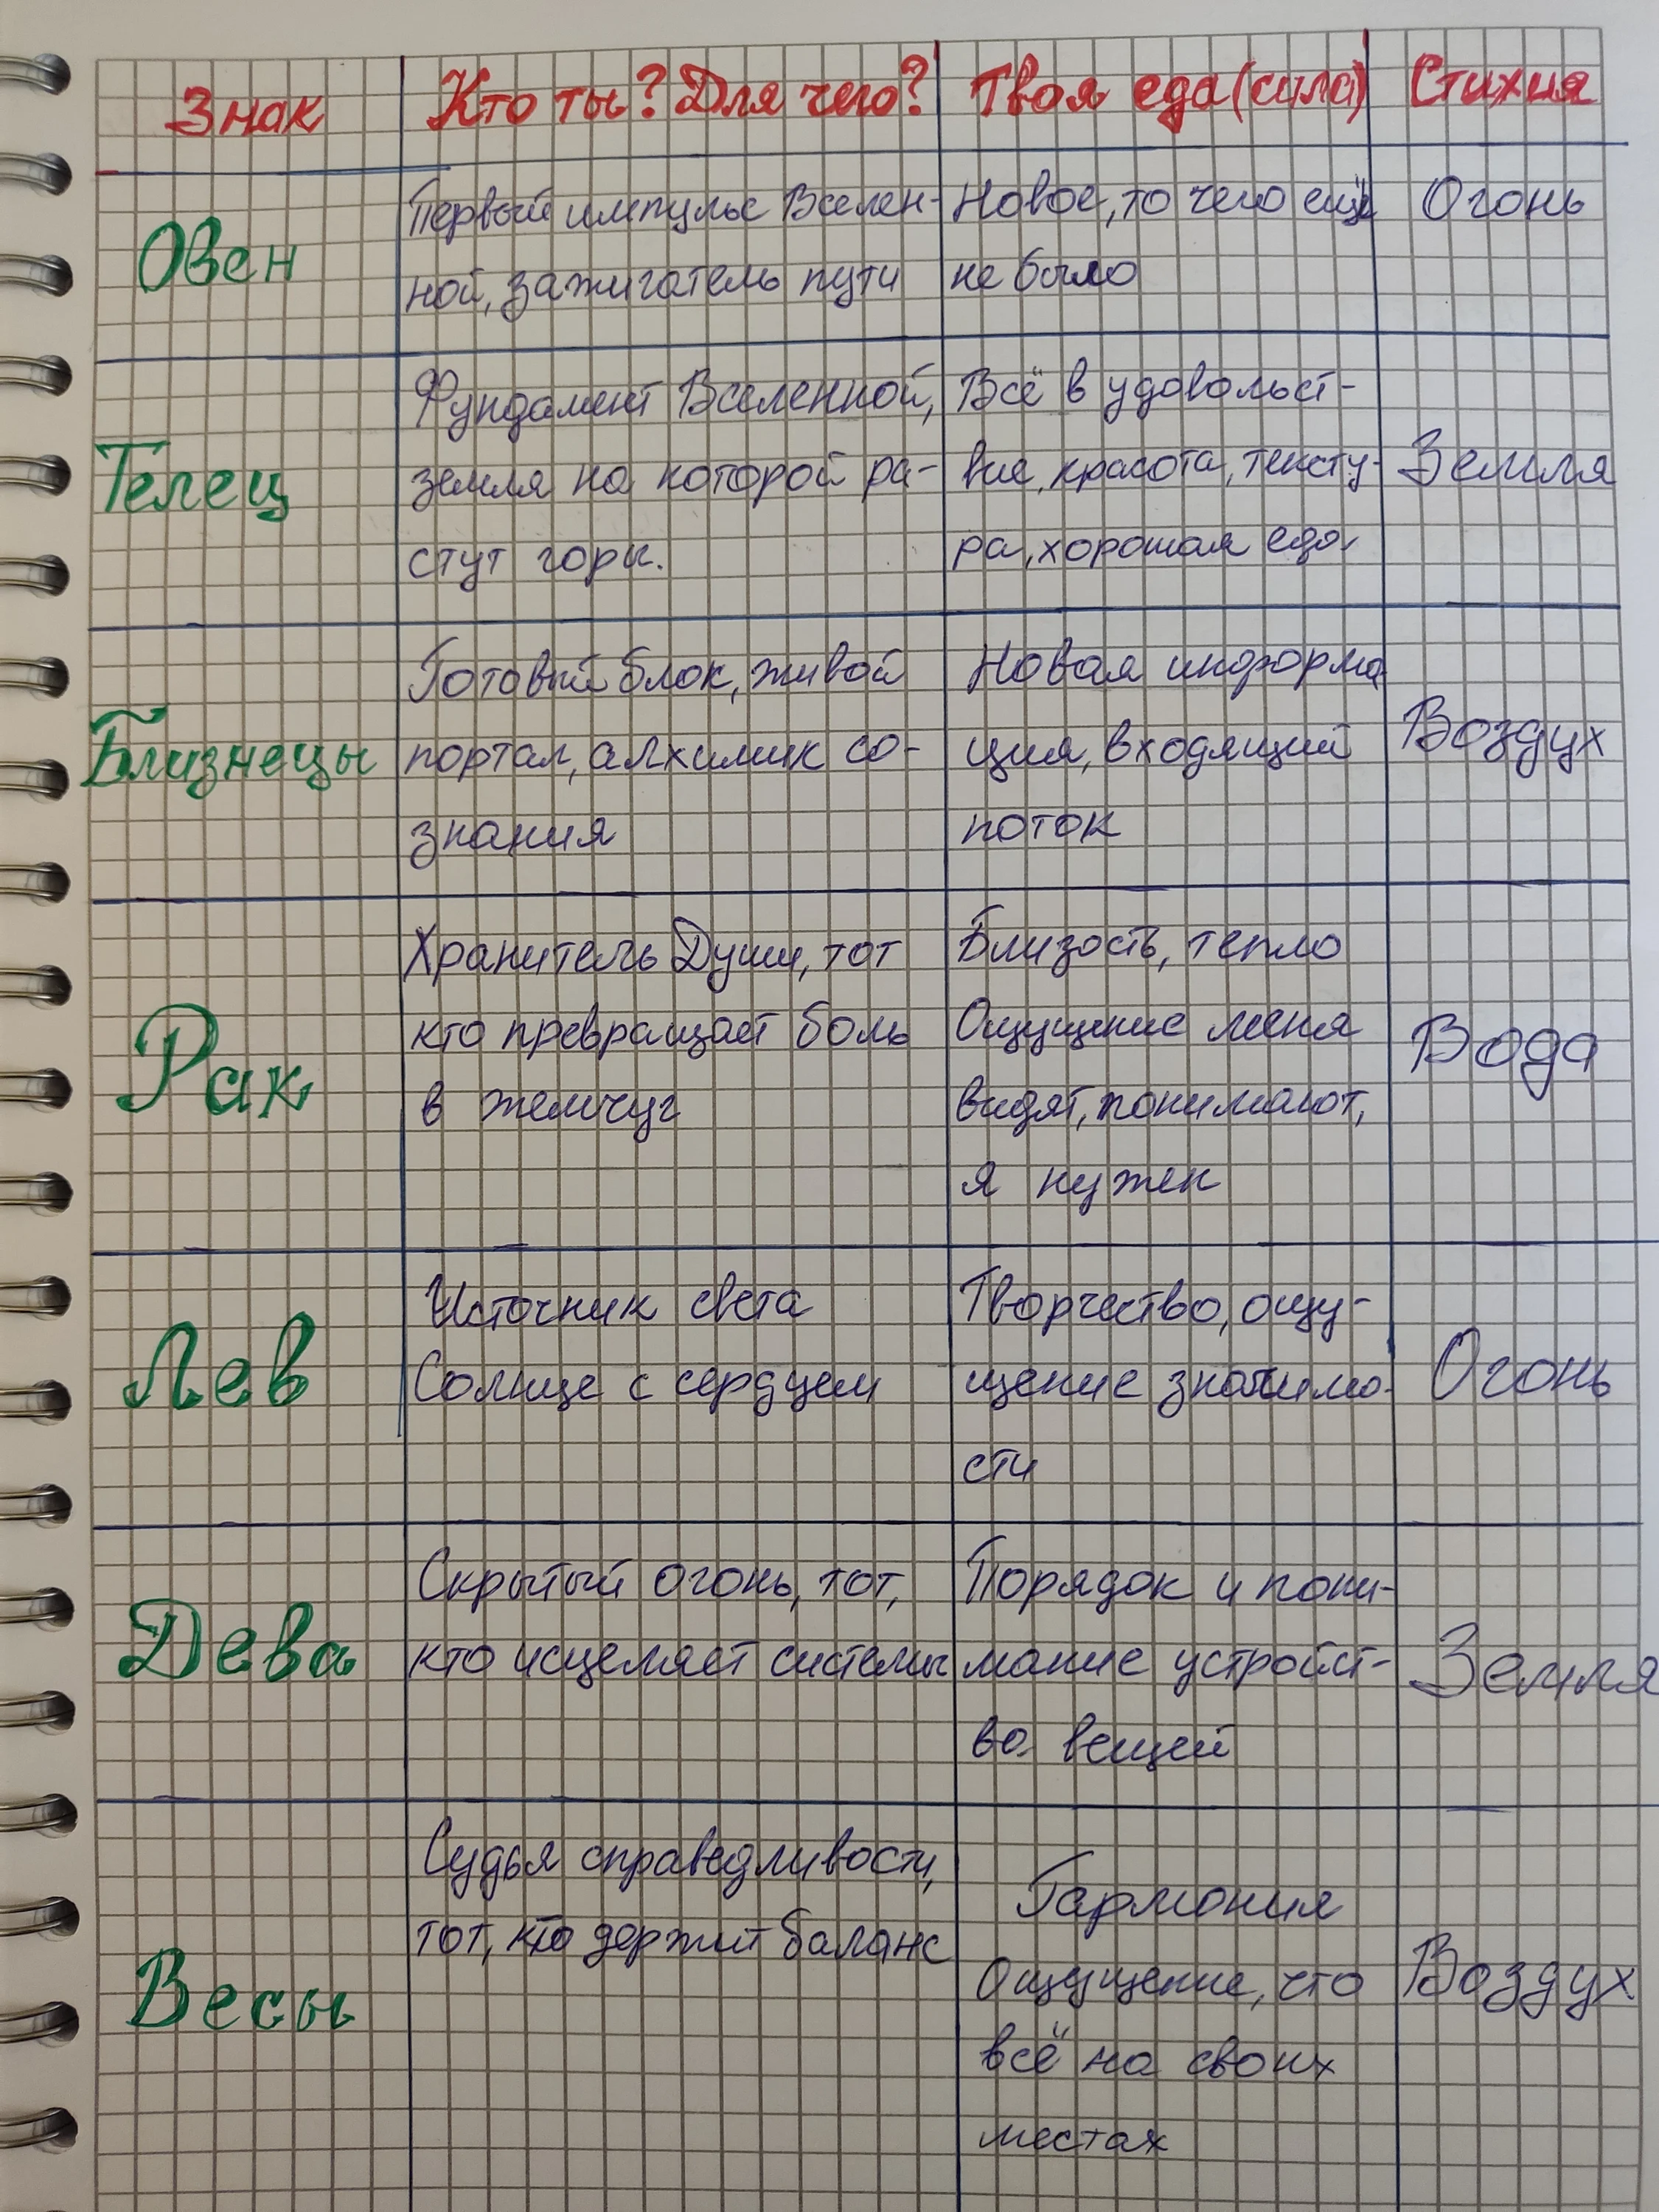 Знак Кто ты? Для чего? Твоя еда(сила) Стихия
Овен
Первый импульс Вселен-
ной, зажигатель пути
Новое, то чего ещё
не было
Огонь
Телец
Фундамент Вселенной,
земля на которой ра-
стут горы.
Всё в удовольст-
вие, красота, тексту-
ра, хорошая еда
Земля
Близнецы
Готовый блок, живой
портал, алхимик со-
знания
Новая информа
ция, входящий
поток
Воздух
Рак
Хранитель Души, тот
кто превращает боль
в жемчуг
Близость, тепло
Ощущение меня
видят, понимают,
я нужен
Вода
Лев
Источник света
Солнце с сердцем
Творчество, ощу-
щение значимо-
сти
Огонь
Дева
Скрытый огонь, тот,
кто исцеляет системы
Порядок и пони-
мание устройст-
во вещей
Земля
Весы
Судья справедливости,
тот, кто держит баланс
Гармония
Ощущение, что
всё на своих
местах
Воздух